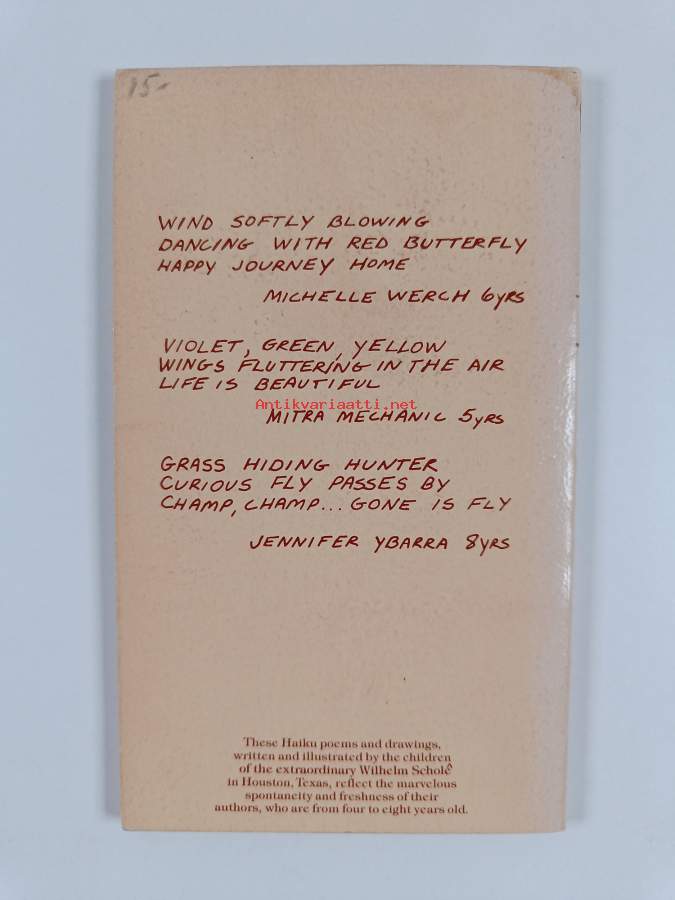 15-
WIND SOFTLY BLOWING
DANCING WITH RED BUTTERFLY
HAPPY JOURNEY HOME
MICHELLE WERCH 6YRS
VIOLET, GREEN, YELLOW
WINGS FLUTTERING IN THE AIR
LIFE IS BEAUTIFUL
Antikvariaatti.net
MITRA MECHANIC 5YRS
GRASS HIDING HUNTER
CURIOUS FLY PASSES BY
CHAMP, CHAMP... GONE IS FLY
JENNIFER YBARRA 8YRS
These Haiku poems and drawings,
written and illustrated by the children
of the extraordinary Wilhelm Scholê
in Houston, Texas, reflect the marvelous
spontaneity and freshness of their
authors, who are from four to eight years old.